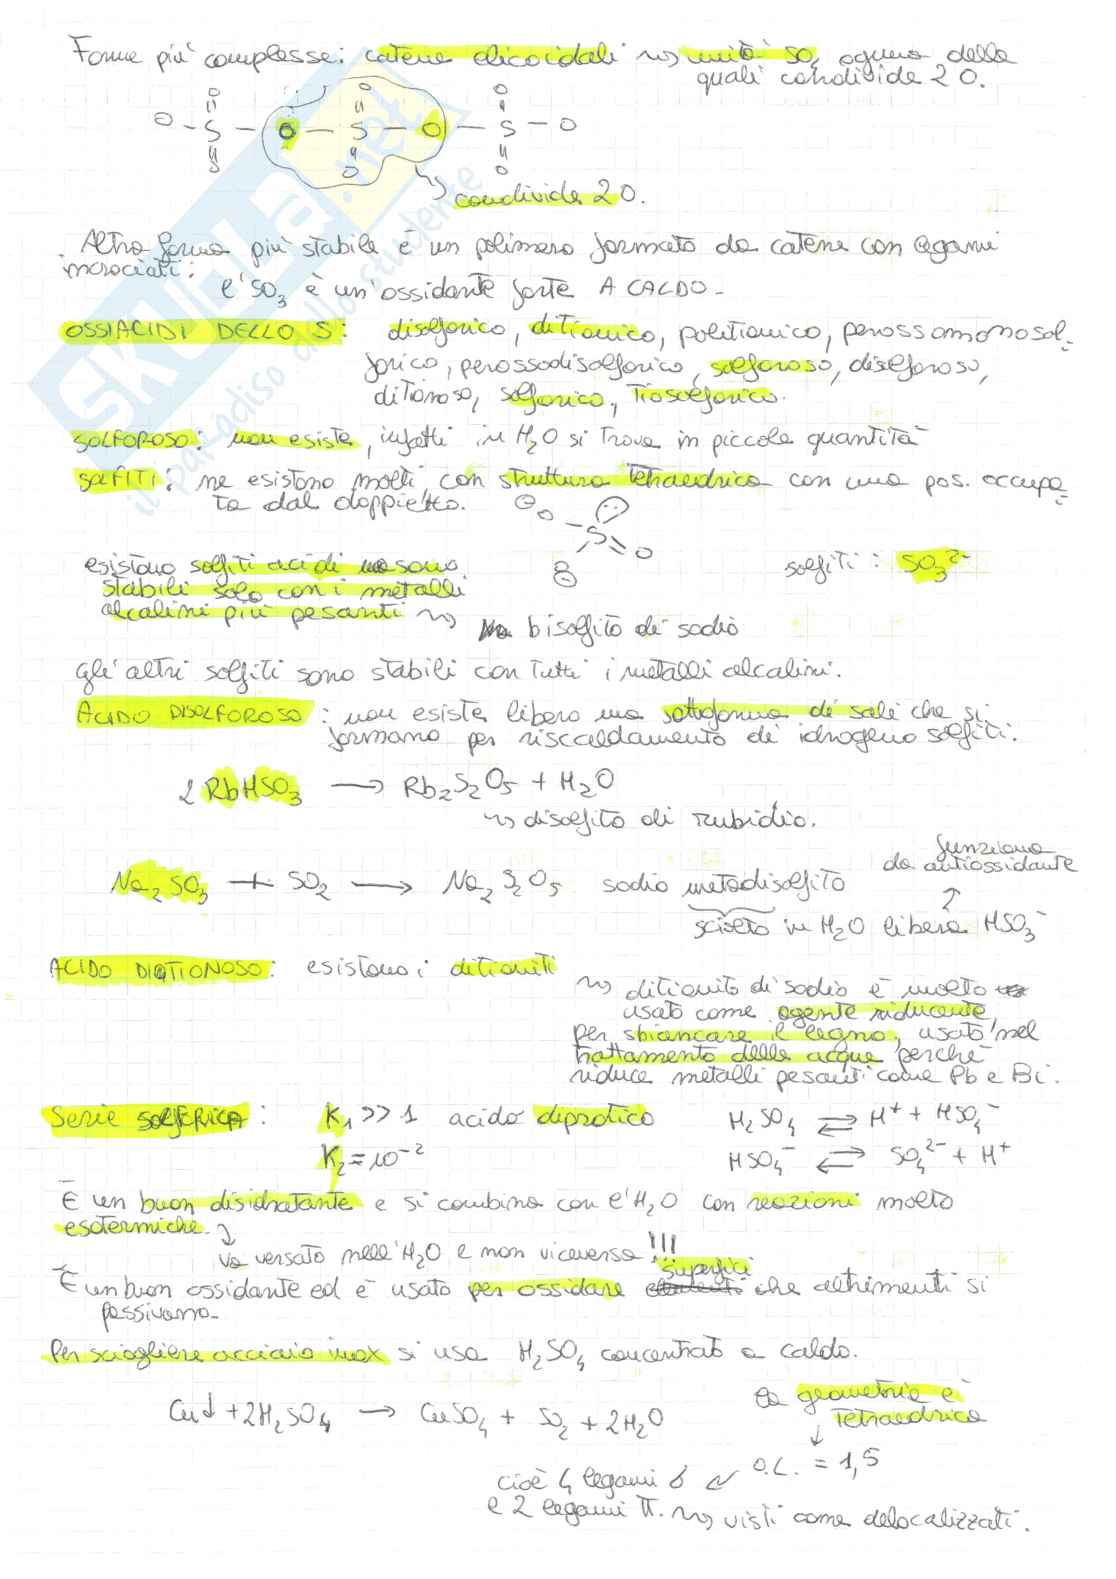 Forme più complesse: catene elicoidali ~> unità SO₃ ognuna delle
quali condivide 2 O.
O O O
O - S - O - S - O - S - O
O O O
~> condivide 2 O.
Altra forma più stabile è un polimero formato da catene con legami
incrociati;
l'SO₃ è un'ossidante forte A CALDO.
OSSIACIDI DELLO S: disolforico, ditionico, politionico, perossomonosol-
forico, perossodisolforico, solforoso, disolforoso,
ditionoso, solforico, tiosolforico.
SOLFOROSO: non esiste, infatti in H₂O si trova in piccole quantità
SOLFITI: ne esistono molti, con struttura tetraedrica con una pos. occupa-
ta dal doppietto.
⊖ O - S = O
O ⊖
solfiti: SO₃²⁻
esistono solfiti acidi sono
stabili solo con i metalli
alcalini più pesanti ~> bisolfito di sodio
gli altri solfiti sono stabili con tutti i metalli alcalini.
ACIDO DISOLFOROSO: non esiste libero ma sottoforma di sali che si
formano per riscaldamento di idrogeno solfiti.
2 RbHSO₃ → Rb₂S₂O₅ + H₂O
~> disolfito di rubidio.
funziona
da antiossidante
↑
Na₂SO₃ + SO₂ → Na₂S₂O₅ sodio metadisolfito
sciolto in H₂O libera HSO₃⁻
ACIDO DITIONOSO: esistono i ditioniti
~> ditionito di sodio è molto
usato come agente riducente,
per sbiancare il legno, usato nel
trattamento delle acque perché
riduce metalli pesanti come Pb e Bi.
Serie SOLFORICA: K₁ >> 1 acido diprotico H₂SO₄ ⇌ H⁺ + HSO₄⁻
K₂ = 10⁻² HSO₄⁻ ⇌ SO₄²⁻ + H⁺
È un buon disidratante e si combina con l'H₂O con reazioni molto
esotermiche.
↓ va versato nell'H₂O e non viceversa !!!
superfici
È un buon ossidante ed è usato per ossidare che altrimenti si
passivano.
Per sciogliere acciaio inox si usa H₂SO₄ concentrato a caldo.
Cu↓ + 2H₂SO₄ → CuSO₄ + SO₂ + 2H₂O
La geometria è
tetraedrica
↓
O.L. = 1,5
cioè 4 legami δ
e 2 legami π. ~> visti come delocalizzati.
SKUOLA.net
il paradiso dello studente